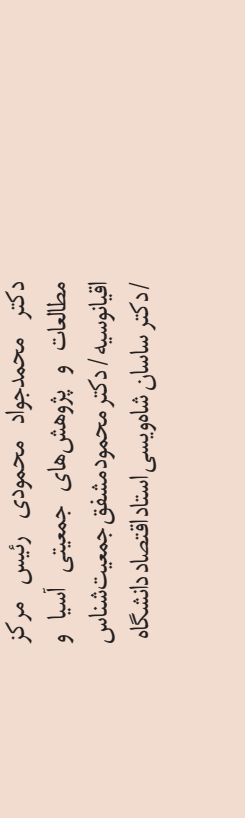 دکتر محمدجواد محمودی رئیس مرکز
مطالعات و پژوهش‌های جمعیتی آسیا و
اقیانوسیه / دکتر محمود مشفق جمعیت‌شناس
/ دکتر ساسان شاه‌ویسی استاد اقتصاد دانشگاه